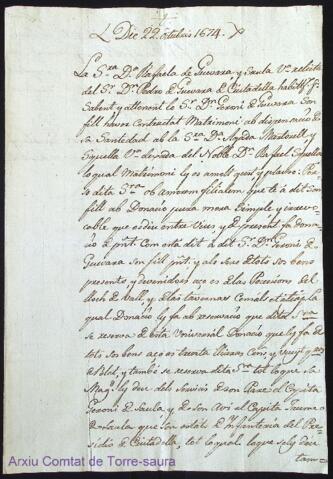 Die 22. octubris 1674.
La Sra. Da. Rafaela de Guevara y Saula Va. relicta
del Sr. Dn. Pedro de Guevara de Ciutadella
Sabent y attenent lo Sr. Dn. Geroni de Guevara Son
fill haver Contractat Matrimoni ab dispensacio de
Sa Santedad ab la Sra. Da. Agada Martorell y
Squella Va. dexada del Noble Dn. Rafael Squella
loqual Matrimoni ly es molt gust y plaher. Per so
dita Sra. ab amorem filialem que te á dit son
fill ab Donacio pura mera Simple y irrevo-
cable que es diu entre vius y de present fa dona-
cio de pnt. Com esta dit á dit Sr. Dn. Geroni de
Guevara Son fill pnt. y als seus de tots sos bens
presents, y devenidors aço es de las Possecions del
Lloch de Vall, y de las
qual Donacio ly fa ab reservacio que dita Sra.
se reserva de esta Universal Donacio que ly fa de
tots sos bens aço es trenta lliuras Cens, y
de Blat, y també se reserva dita Sra. tot loque Sa
Magd. ly deu dels Servicis de son Pare el Capita
Geroni de Saula, y de son Avi el Capita
de Saula que son estats de Infanteria del Pre-
sidio de Ciutadella, tot loqual
tam=
Arxiu Comtat de Torre-saura